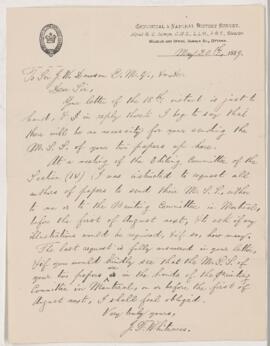 GEOLOGICAL & NATURAL HISTORY SURVEY.
MUSEUM AND OFFICE, SUSSEX ST., OTTAWA.
May 20th, 1889.
To Sir J. W. Dawson C.M.G.,
Dear Sir,
Your letter of the 18th instant is just to
hand, & in reply thereto I beg to say that
there will be no necessity for your sending the
M.S.S. of your two papers up here.
At a meeting of the Editing Committee of the
Section (IV) I was instructed to request all
authors of papers to send their M.S.S. either
to me or to the Printing Committee in Montreal,
before the first of August next, & to ask if any
illustrations would be required, & if so, how many.
The last request is fully answered in your letter,
& if you would kindly see that the M.S.S. of
your two papers in the hands of the Printing
Committee in Montreal, on or before the first of
August next, I shall feel obliged.
Very truly yours,
J. F. Whiteaves.